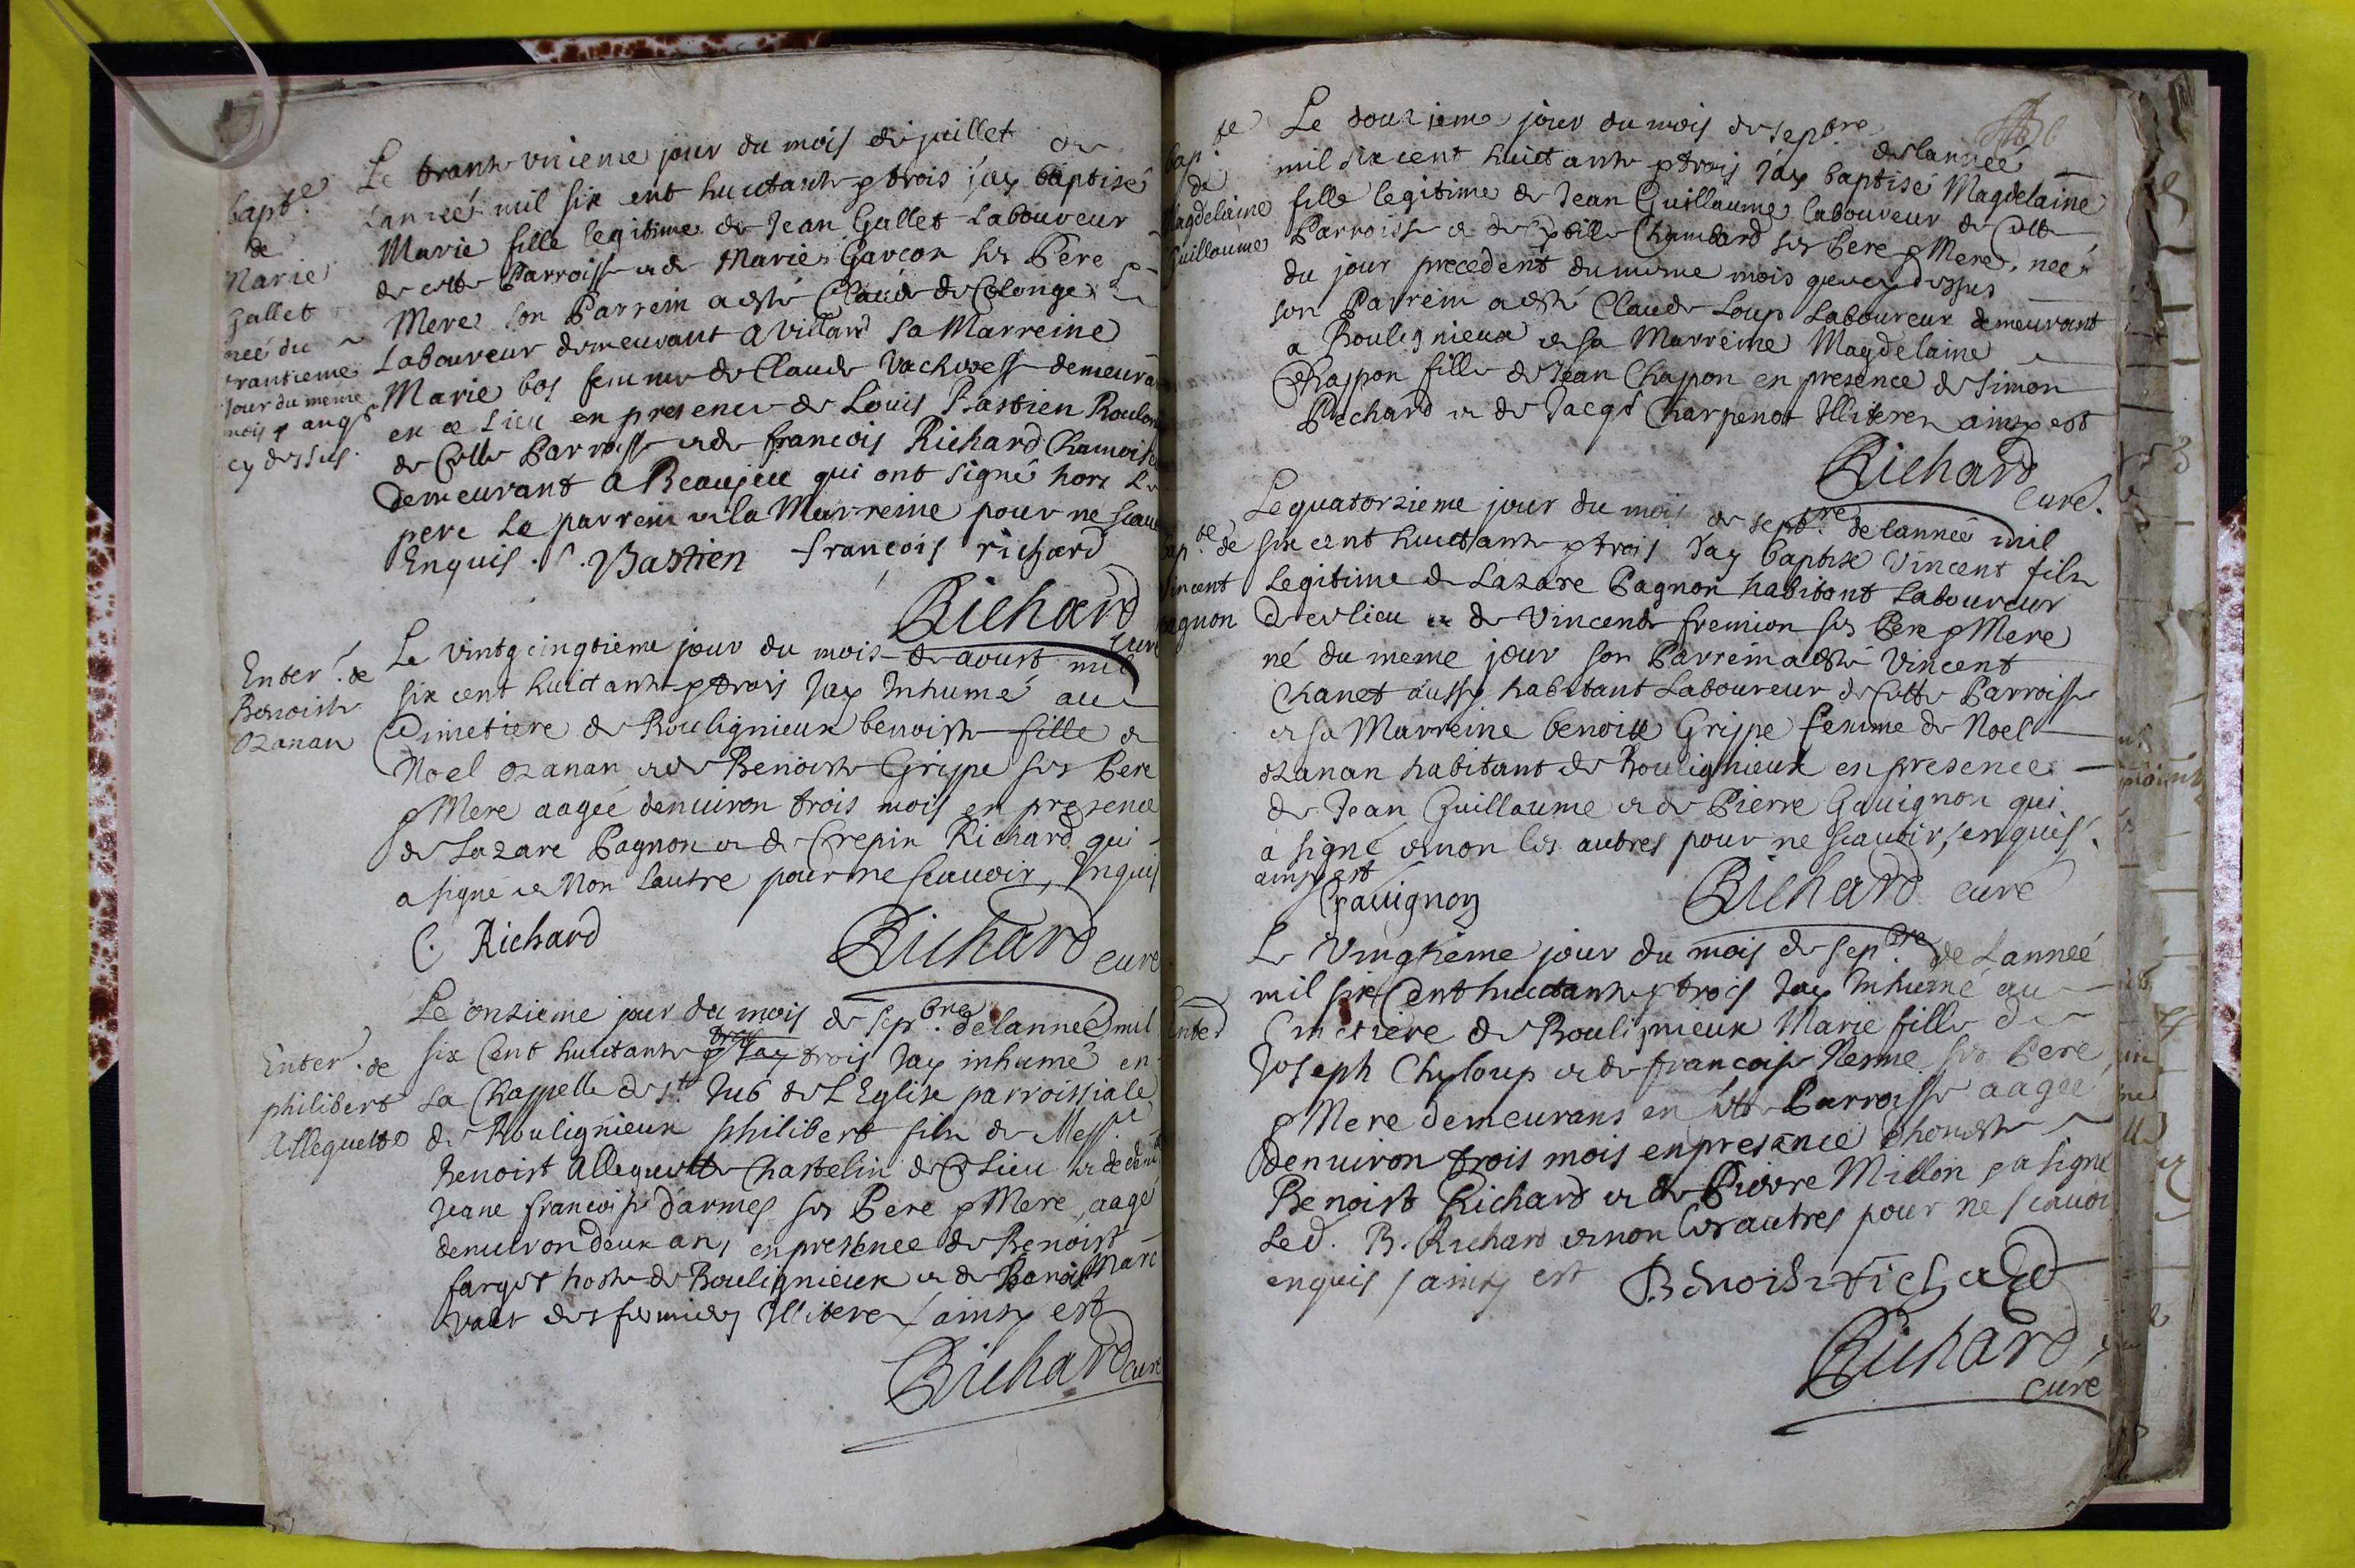 bapt.e
de
Marie
Gallet
neé du
trantieme
Jour du meme
mois & an qs
cy dessus.
Le trante unieme jour du mois de juillet de
Lanneé mil six cent huictante & trois jay baptisé
Marie fille legitime de Jean Gallet Laboureur
de cette Parroisse et de Marie Garcon ses Pere &
Mere son Parrein a esté Claude de Colonge
Laboureur demeurant a villard sa Marreine
Marie bos femme de Claude demeurant
en ce Lieu en presence de Louis Bastien
de Cette Parroisse et de francois Richard Chamois
demeurant a Beaujeu qui ont signé hors Le
pere Le parrein et la Marreine pour ne scav
Enquis. L. Bastien françois richard
Richard
curé
Enter.t de
Benoiste
Ozanan
Le vintgcinqtieme jour du mois de aoust mil
six cent huictante & trois Jay Inhumé au
Cimetiere de Boulignieux benoiste fille de
Noel ozanan et de Benoiste Grippe ses Pere
& Mere aageé denuiron trois mois en presence
de Lazare Pagnon et de Crepin Richard qui
a signé et Non Lautre pour ne scauoir, Inquis
C. Richard
Richard curé
Enter.t de
philibert
Allequette
Le onzieme jour du mois de sep.bre de lanneé mil
six Cent huictante & Jay trois Jay inhumé en
La Chappelle de st. de LEglise parroissiale
de Boulignieux philibert fils de Mess.re
benoist Allequette Chastelin de Ce Lieu et de
Jeane francoise darmes ses Pere & Mere, aagé
denuiron deux ans en presence de Benoist
farget hoste de Boulignieux et de Benoist Mare
valet des fermiers Illiteres / ainsy est
Richard curé
bap.te
de
Magdelaine
Guillaume
Le douzieme jour du mois de sep.bre de lanneé
mil six cent huictante & trois Jay baptisé Magdelaine
fille legitime de Jean Guillaume laboureur de Cette
Parroisse et de Chambard ses Pere & Mere, neé
du jour precedent du meme mois que cy dessus
son Parrein a esté Claude Loup Laboureur demeurant
a Boulignieux et sa Marreine Magdelaine
Chappon fille de Jean Chappon en presence de Simon
Pechard et de Jacqs Charpenot Illiteres ainsy est
Richard
Curé.
bap.te de
Vincent
Pagnon
Le quatorzieme jour du mois de sept.bre de lanneé mil
six cent huictante & trois Jay baptisé Vincent fils
Legitime de Lazare Pagnon habitant Laboureur
de ce lieu et de Vincende fremion ses Pere & Mere
né du meme jour son Parrein a esté Vincent
Chanet aussy habitant Laboureur de Cette Parroisse
et sa Marreine benoitte Grippe femme de Noel
ozanan habitant de Boulignieux en presence
de Jean Guillaume et de Pierre Gauignon qui
a signé et non les autres pour ne scauoir, enquis.
ainsy est
Gauignon
Richard curé
Enter.
Le Vingtieme jour du mois de sep.bre de Lanneé
mil six Cent huictante & trois Jay Inhumé au
Cimetiere de Boulignieux Marie fille de
Joseph Chyloup et de francoise Nesme ses Pere
& Mere demeurans en cette Parroisse aageé
denuiron trois mois en presence dhoneste
Benoist Richard et de Pierre Millon & a signé
Led. B. Richard et non les autres pour ne scauoir
enquis / ainsy est Benoist richard
Richard
curé